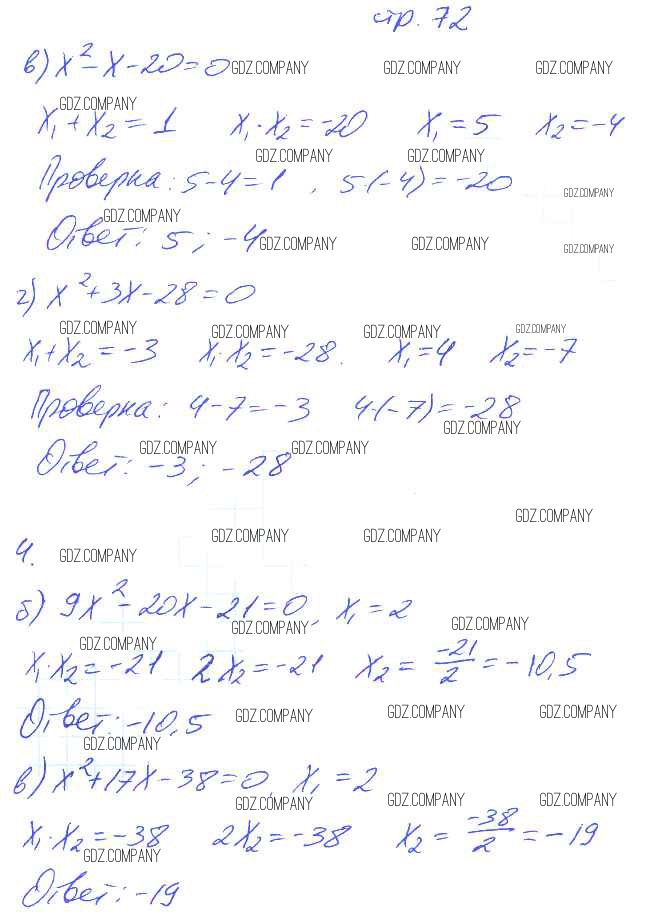 стр. 72
в) x² - x - 20 = 0 GDZ.COMPANY GDZ.COMPANY GDZ.COMPANY
GDZ.COMPANY
x₁ + x₂ = 1 x₁ · x₂ = -20 x₁ = 5 x₂ = -4
GDZ.COMPANY GDZ.COMPANY
Проверка: 5 - 4 = 1 , 5·(-4) = -20 GDZ.COMPANY
GDZ.COMPANY
Ответ: 5 ; -4 GDZ.COMPANY GDZ.COMPANY GDZ.COMPANY
г) x² + 3x - 28 = 0
GDZ.COMPANY GDZ.COMPANY GDZ.COMPANY GDZ.COMPANY
x₁ + x₂ = -3 x₁ · x₂ = -28. x₁ = 4 x₂ = -7
Проверка: 4 - 7 = -3 4·(-7) = -28
GDZ.COMPANY
Ответ: -3 ; -28 GDZ.COMPANY GDZ.COMPANY
GDZ.COMPANY
4. GDZ.COMPANY GDZ.COMPANY GDZ.COMPANY
б) 9x² - 20x - 21 = 0, x₁ = 2
GDZ.COMPANY GDZ.COMPANY
GDZ.COMPANY
x₁ · x₂ = -21 2x₂ = -21 x₂ = -21/2 = -10,5
Ответ: -10,5 GDZ.COMPANY GDZ.COMPANY GDZ.COMPANY
GDZ.COMPANY
в) x² + 17x - 38 = 0 x₁ = 2
GDZ.COMPANY GDZ.COMPANY GDZ.COMPANY
x₁ · x₂ = -38 2x₂ = -38 x₂ = -38/2 = -19
GDZ.COMPANY
Ответ: -19